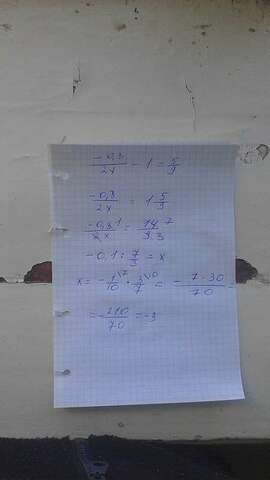 -0,8/2x - 1 = 5/9
-0,8/2x = 1 5/9
-0,8 1/2x = 14 7/9.3
-0,1 : 7/3 = x
x = - 1/10 \7 · 3/7 \10 = - 7·30/70 =
= - 210/70 = -3